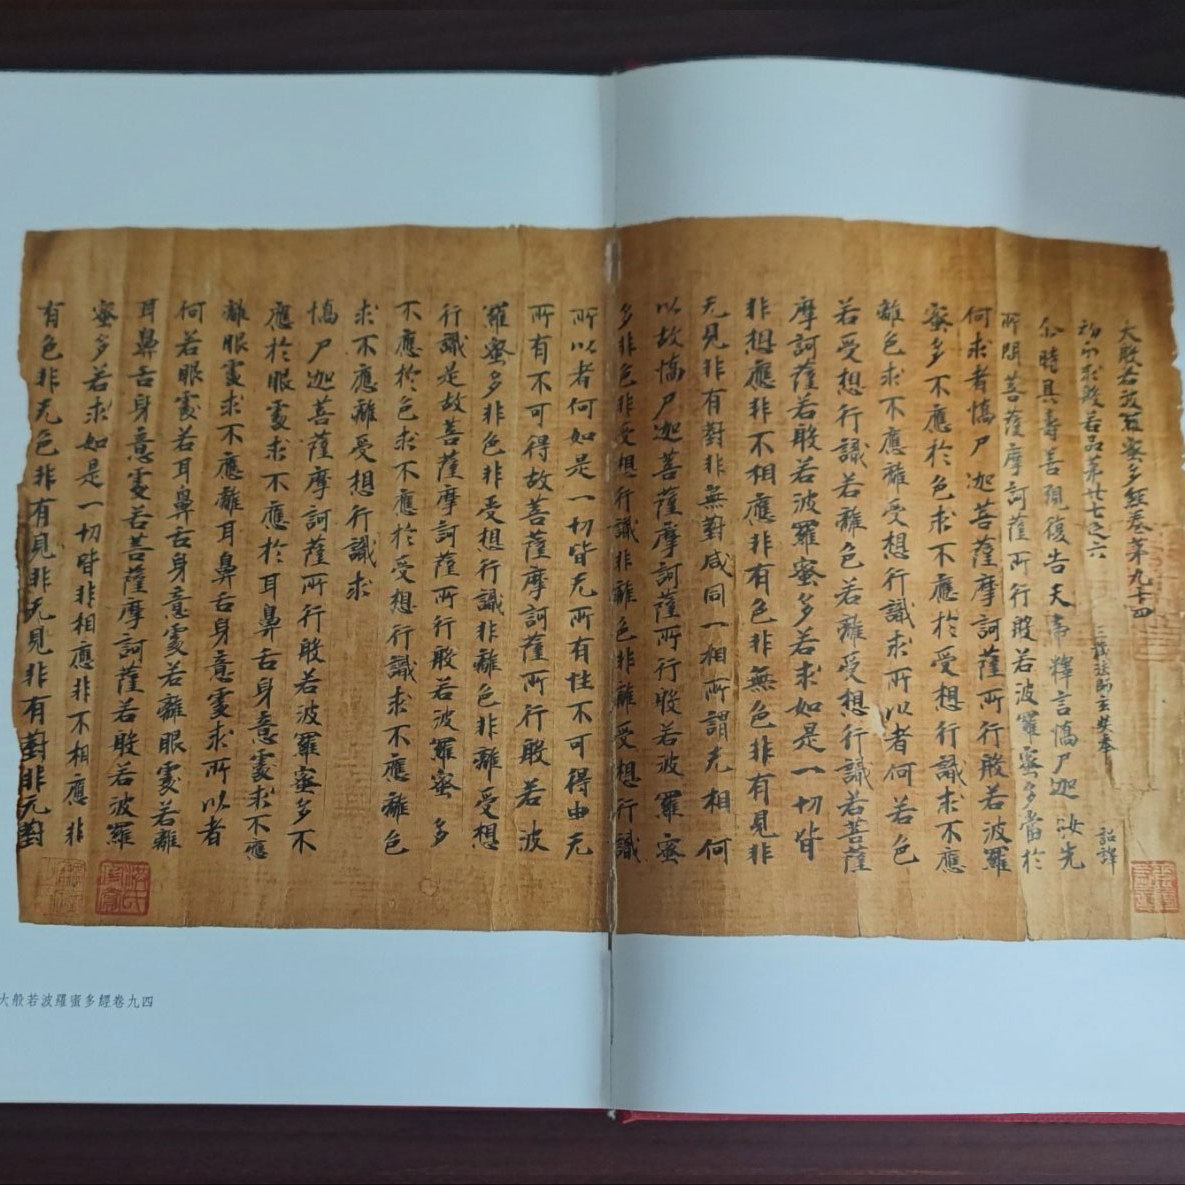 大般若波羅蜜多經卷第九十四
初分求般若品第廿七之六 三藏法師玄奘奉 詔譯
尒時具壽善現復告天帝釋言憍尸迦汝先
所問菩薩摩訶薩所行般若波羅蜜多當於
何求者憍尸迦菩薩摩訶薩所行般若波羅
蜜多不應於色求不應於受想行識求不應
離色求不應離受想行識求所以者何若色
若受想行識若離色若離受想行識若菩薩
摩訶薩若般若波羅蜜多若求如是一切皆
非想應非不相應非有色非無色非有見非
无見非有對非無對咸同一相所謂无相何
以故憍尸迦菩薩摩訶薩所行般若波羅蜜
多非色非受想行識非離色非離受想行識
所以者何如是一切皆无所有性不可得由无
所有不可得故菩薩摩訶薩所行般若波
羅蜜多非色非受想行識非離色非離受想
行識是故菩薩摩訶薩所行般若波羅蜜多
不應於色求不應於受想行識求不應離色
求不應離受想行識求
憍尸迦菩薩摩訶薩所行般若波羅蜜多不
應於眼處求不應於耳鼻舌身意處求不應
離眼處求不應離耳鼻舌身意處求所以者
何若眼處若耳鼻舌身意處若離眼處若離
耳鼻舌身意處若菩薩摩訶薩若般若波羅
蜜多若求如是一切皆非相應非不相應非
有色非无色非有見非无見非有對非无對
大般若波羅蜜多經卷九四